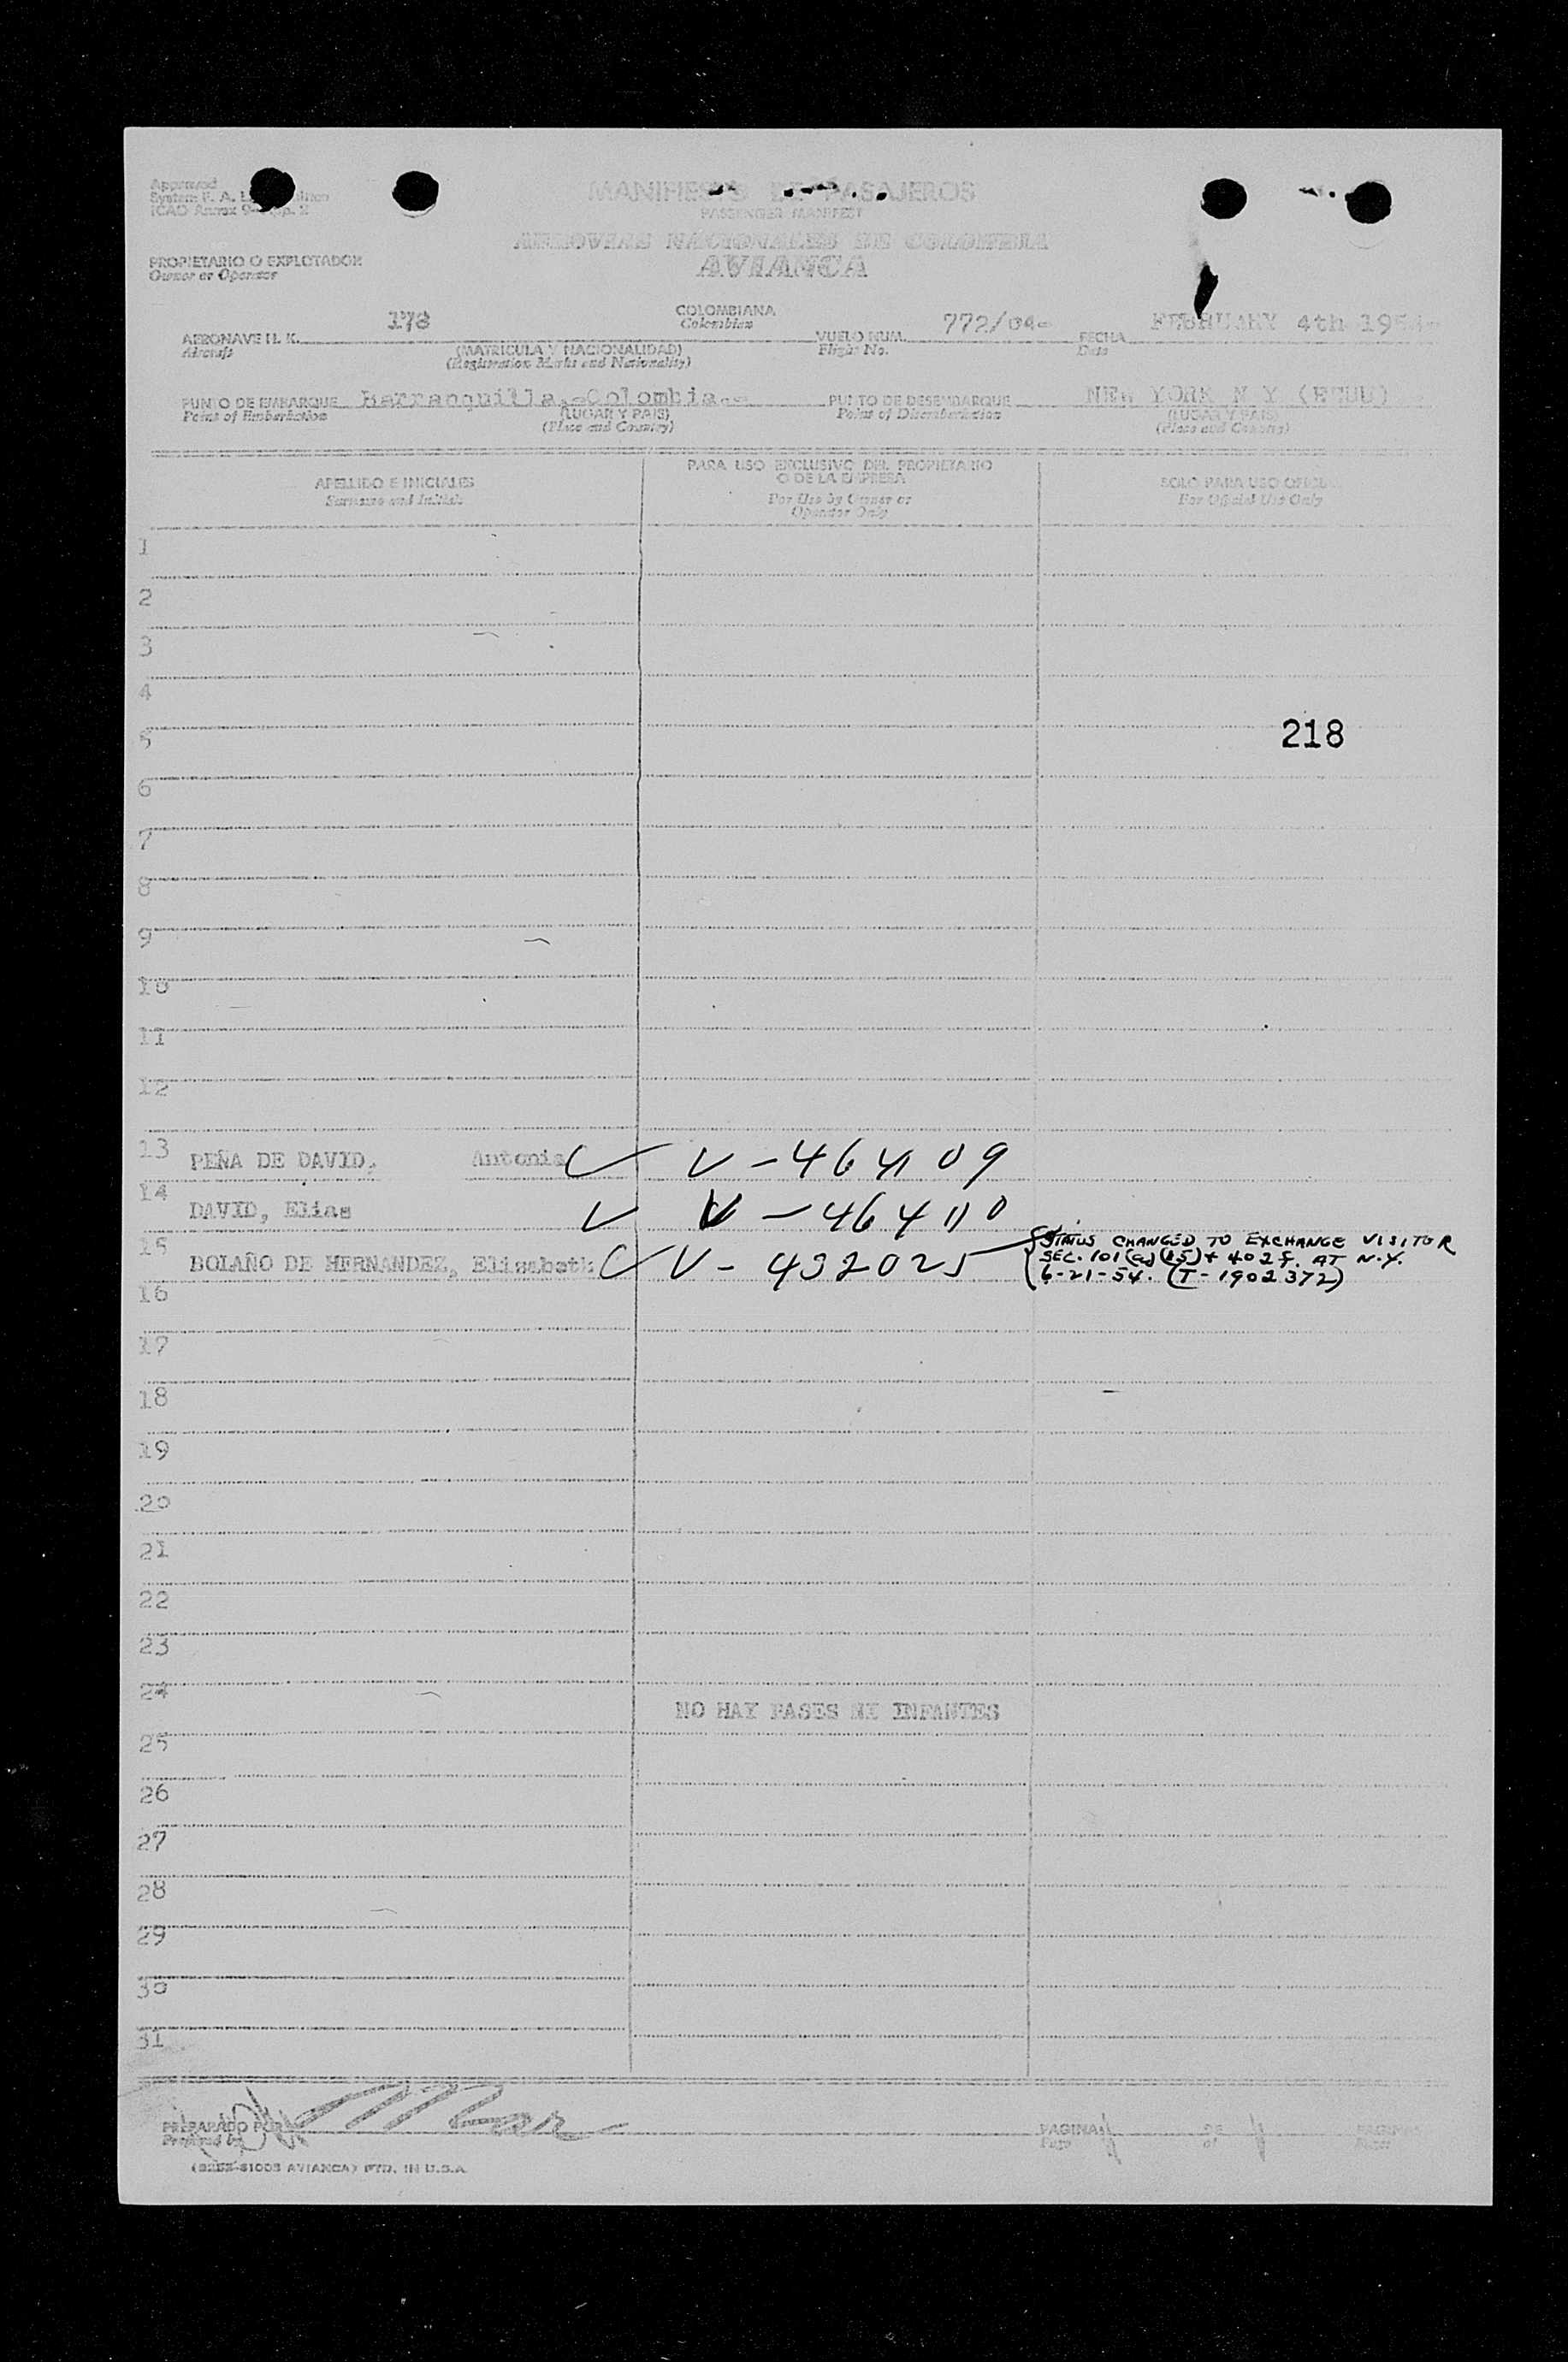 Approved
System F. A. L.
ICAO Annex 9- App. 2
MANIFIESTO DE PASAJEROS
PASSENGER MANIFEST
AEROVIAS NACIONALES DE COLOMBIA
AVIANCA
PROPIETARIO O EXPLOTADOR
Owner or Operator
AERONAVE H. K. 178 COLOMBIANA VUELO NUM. 772/04- FECHA FEBRUARY 4th 1954-
Aircraft Colombian Flight No. Date
(MATRICULA Y NACIONALIDAD)
(Registration Marks and Nationality)
PUNTO DE EMBARQUE Barranquilla,-Colombia.-- PUNTO DE DESEMBARQUE NEW YORK N Y (EEUU)
Point of Embarkation (LUGAR Y PAIS) Point of Disembarkation (LUGAR Y PAIS)
(Place and Country) (Place and Country)
APELLIDO E INICIALES
Surname and Initials
PARA USO EXCLUSIVO DEL PROPIETARIO
O DE LA EMPRESA
For Use by Owner or
Operator Only
SOLO PARA USO OFICIAL
For Official Use Only
1
2
3
4
5 218
6
7
8
9
10
11
12
13 PEÑA DE DAVID, Antonia V-464109
14 DAVID, Elias V-464110
15 BOLAÑO DE HERNANDEZ, Elisabeth V-432025
STATUS CHANGED TO EXCHANGE VISITOR
SEC. 101(a)(15)+ 402f. AT N.Y.
6-21-54. (T-1902372)
16
17
18
19
20
21
22
23
24 NO HAY PASES NI INFANTES
25
26
27
28
29
30
31
PREPARADO POR PAGINA 1 DE 1 PAGINAS
Prepared by Page of Pages
AVIANCA) PTD. IN U.S.A.